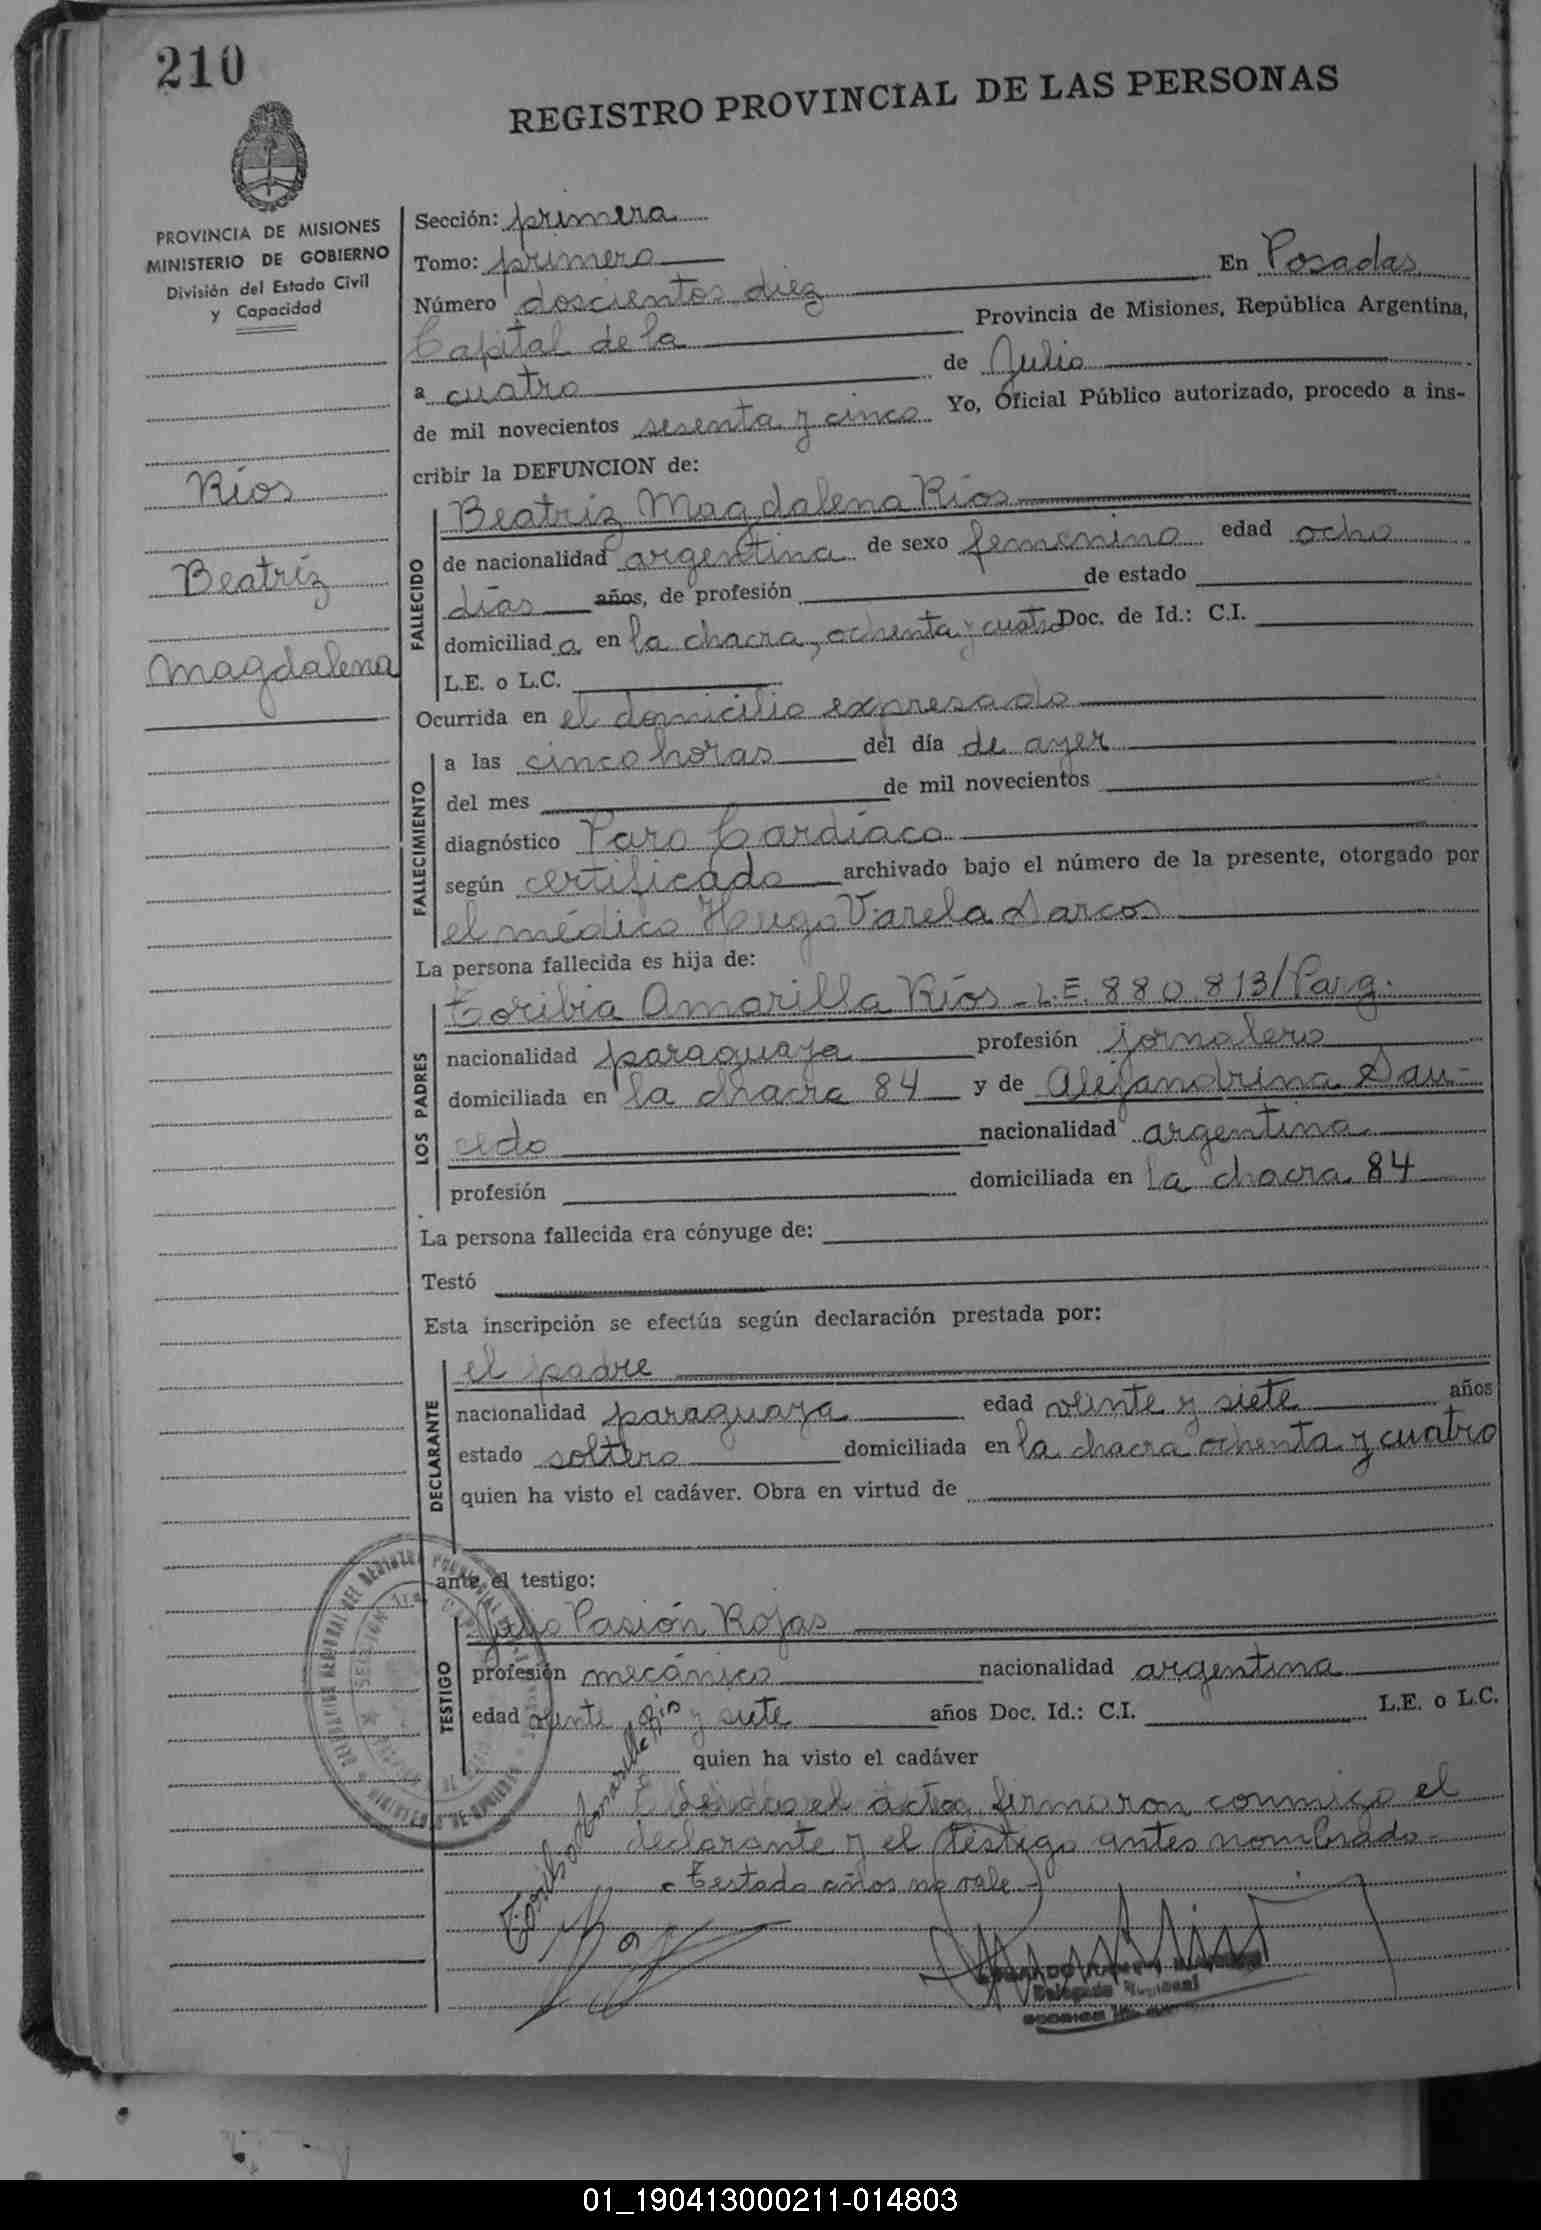 210
REGISTRO PROVINCIAL DE LAS PERSONAS
PROVINCIA DE MISIONES
MINISTERIO DE GOBIERNO
División del Estado Civil
y Capacidad
Ríos
Beatríz
Magdalena
Sección: primera
Tomo: primero
Número doscientos diez En Posadas
Capital de la Provincia de Misiones, República Argentina,
a cuatro de Julio
de mil novecientos sesenta y cinco Yo, Oficial Público autorizado, procedo a ins-
cribir la DEFUNCION de:
FALLECIDO
Beatriz Magdalena Ríos
de nacionalidad argentina de sexo femenino edad ocho
días años, de profesión de estado
domiciliada en la chacra, ochenta y cuatro Doc. de Id.: C.I.
L.E. o L.C.
Ocurrida en el domicilio expresado
FALLECIMIENTO
a las cinco horas del día de ayer
del mes de mil novecientos
diagnóstico Paro Cardíaco
según certificado archivado bajo el número de la presente, otorgado por
el médico Hugo Varela Darcos
La persona fallecida es hija de:
LOS PADRES
Toribia Amarilla Ríos - L.E. 880.813/Parg.
nacionalidad paraguaya profesión jornalero
domiciliada en la chacra 84 y de Alejandrina Sau-
cedo nacionalidad argentina
profesión domiciliada en la chacra 84
La persona fallecida era cónyuge de:
Testó
Esta inscripción se efectúa según declaración prestada por:
DECLARANTE
el padre
nacionalidad paraguaya edad veinte y siete años
estado soltero domiciliada en la chacra ochenta y cuatro
quien ha visto el cadáver. Obra en virtud de
ante el testigo:
TESTIGO
Julio Pasión Rojas
profesión mecánico nacionalidad argentina
edad veinte y siete años Doc. Id.: C.I. L.E. o L.C.
quien ha visto el cadáver
el acta, firmaron conmigo el
declarante y el testigo antes nombrado.-
- Testado años no vale -
Toribio Amarilla Rios
Delegado Regional
01_190413000211-014803